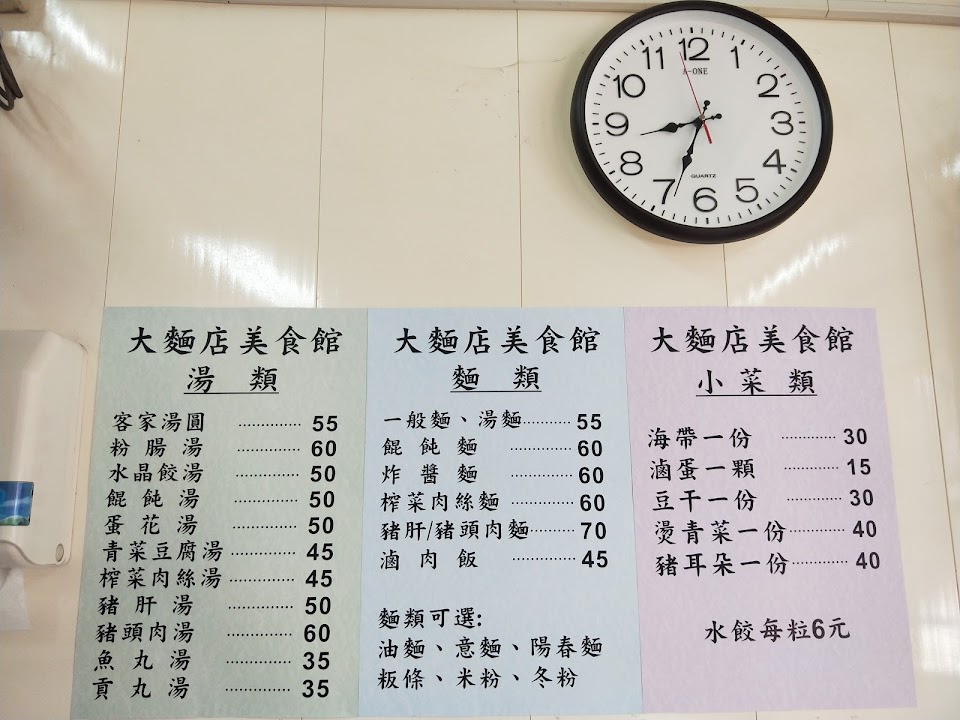 11 12 1
10 2
9 3
8 4
7 6 5
QUARTZ
大麵店美食館
湯 類
客家湯圓 ………… 55
粉腸湯 ………… 60
水晶餃湯 ………… 50
餛飩湯 ………… 50
蛋花湯 ………… 50
青菜豆腐湯 ………… 45
榨菜肉絲湯 ………… 45
豬肝湯 ………… 50
豬頭肉湯 ………… 60
魚丸湯 ………… 35
貢丸湯 ………… 35
大麵店美食館
麵 類
一般麵、湯麵 ………… 55
餛飩麵 ………… 60
炸醬麵 ………… 60
榨菜肉絲麵 ………… 60
豬肝/豬頭肉麵 ………… 70
滷肉飯 ………… 45
麵類可選:
油麵、意麵、陽春麵
粄條、米粉、冬粉
大麵店美食館
小菜類
海帶一份 ………… 30
滷蛋一顆 ………… 15
豆干一份 ………… 30
燙青菜一份 ………… 40
豬耳朵一份 ………… 40
水餃每粒6元